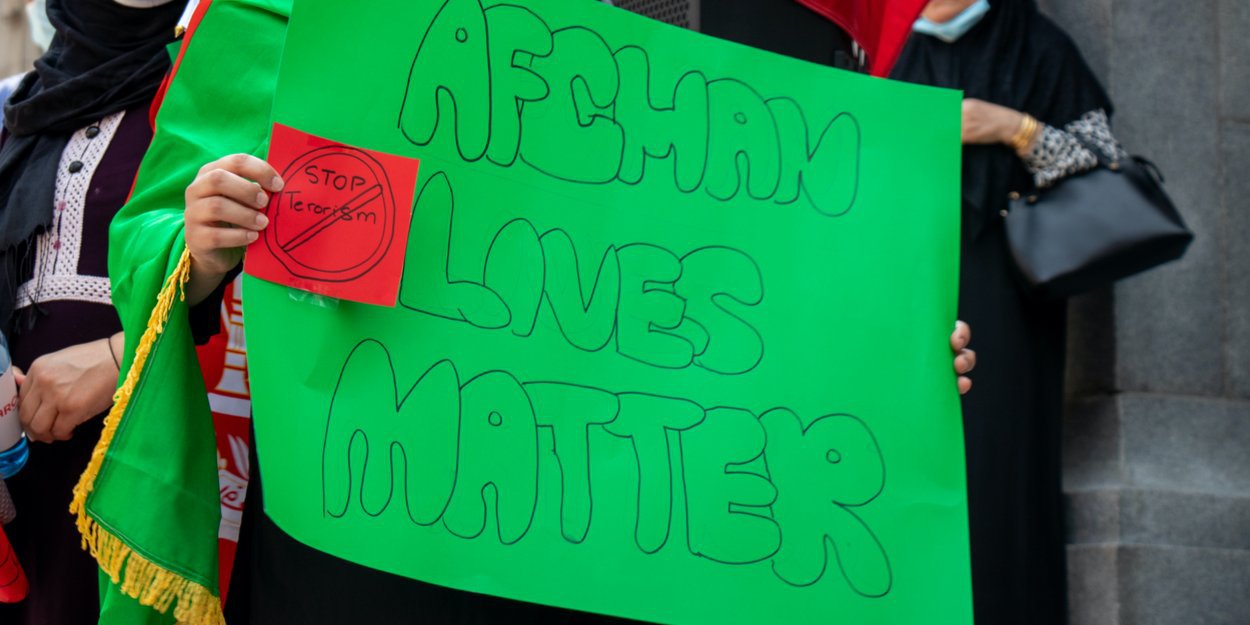 AFGHAN
STOP
Terorism
LIVES
MATTER